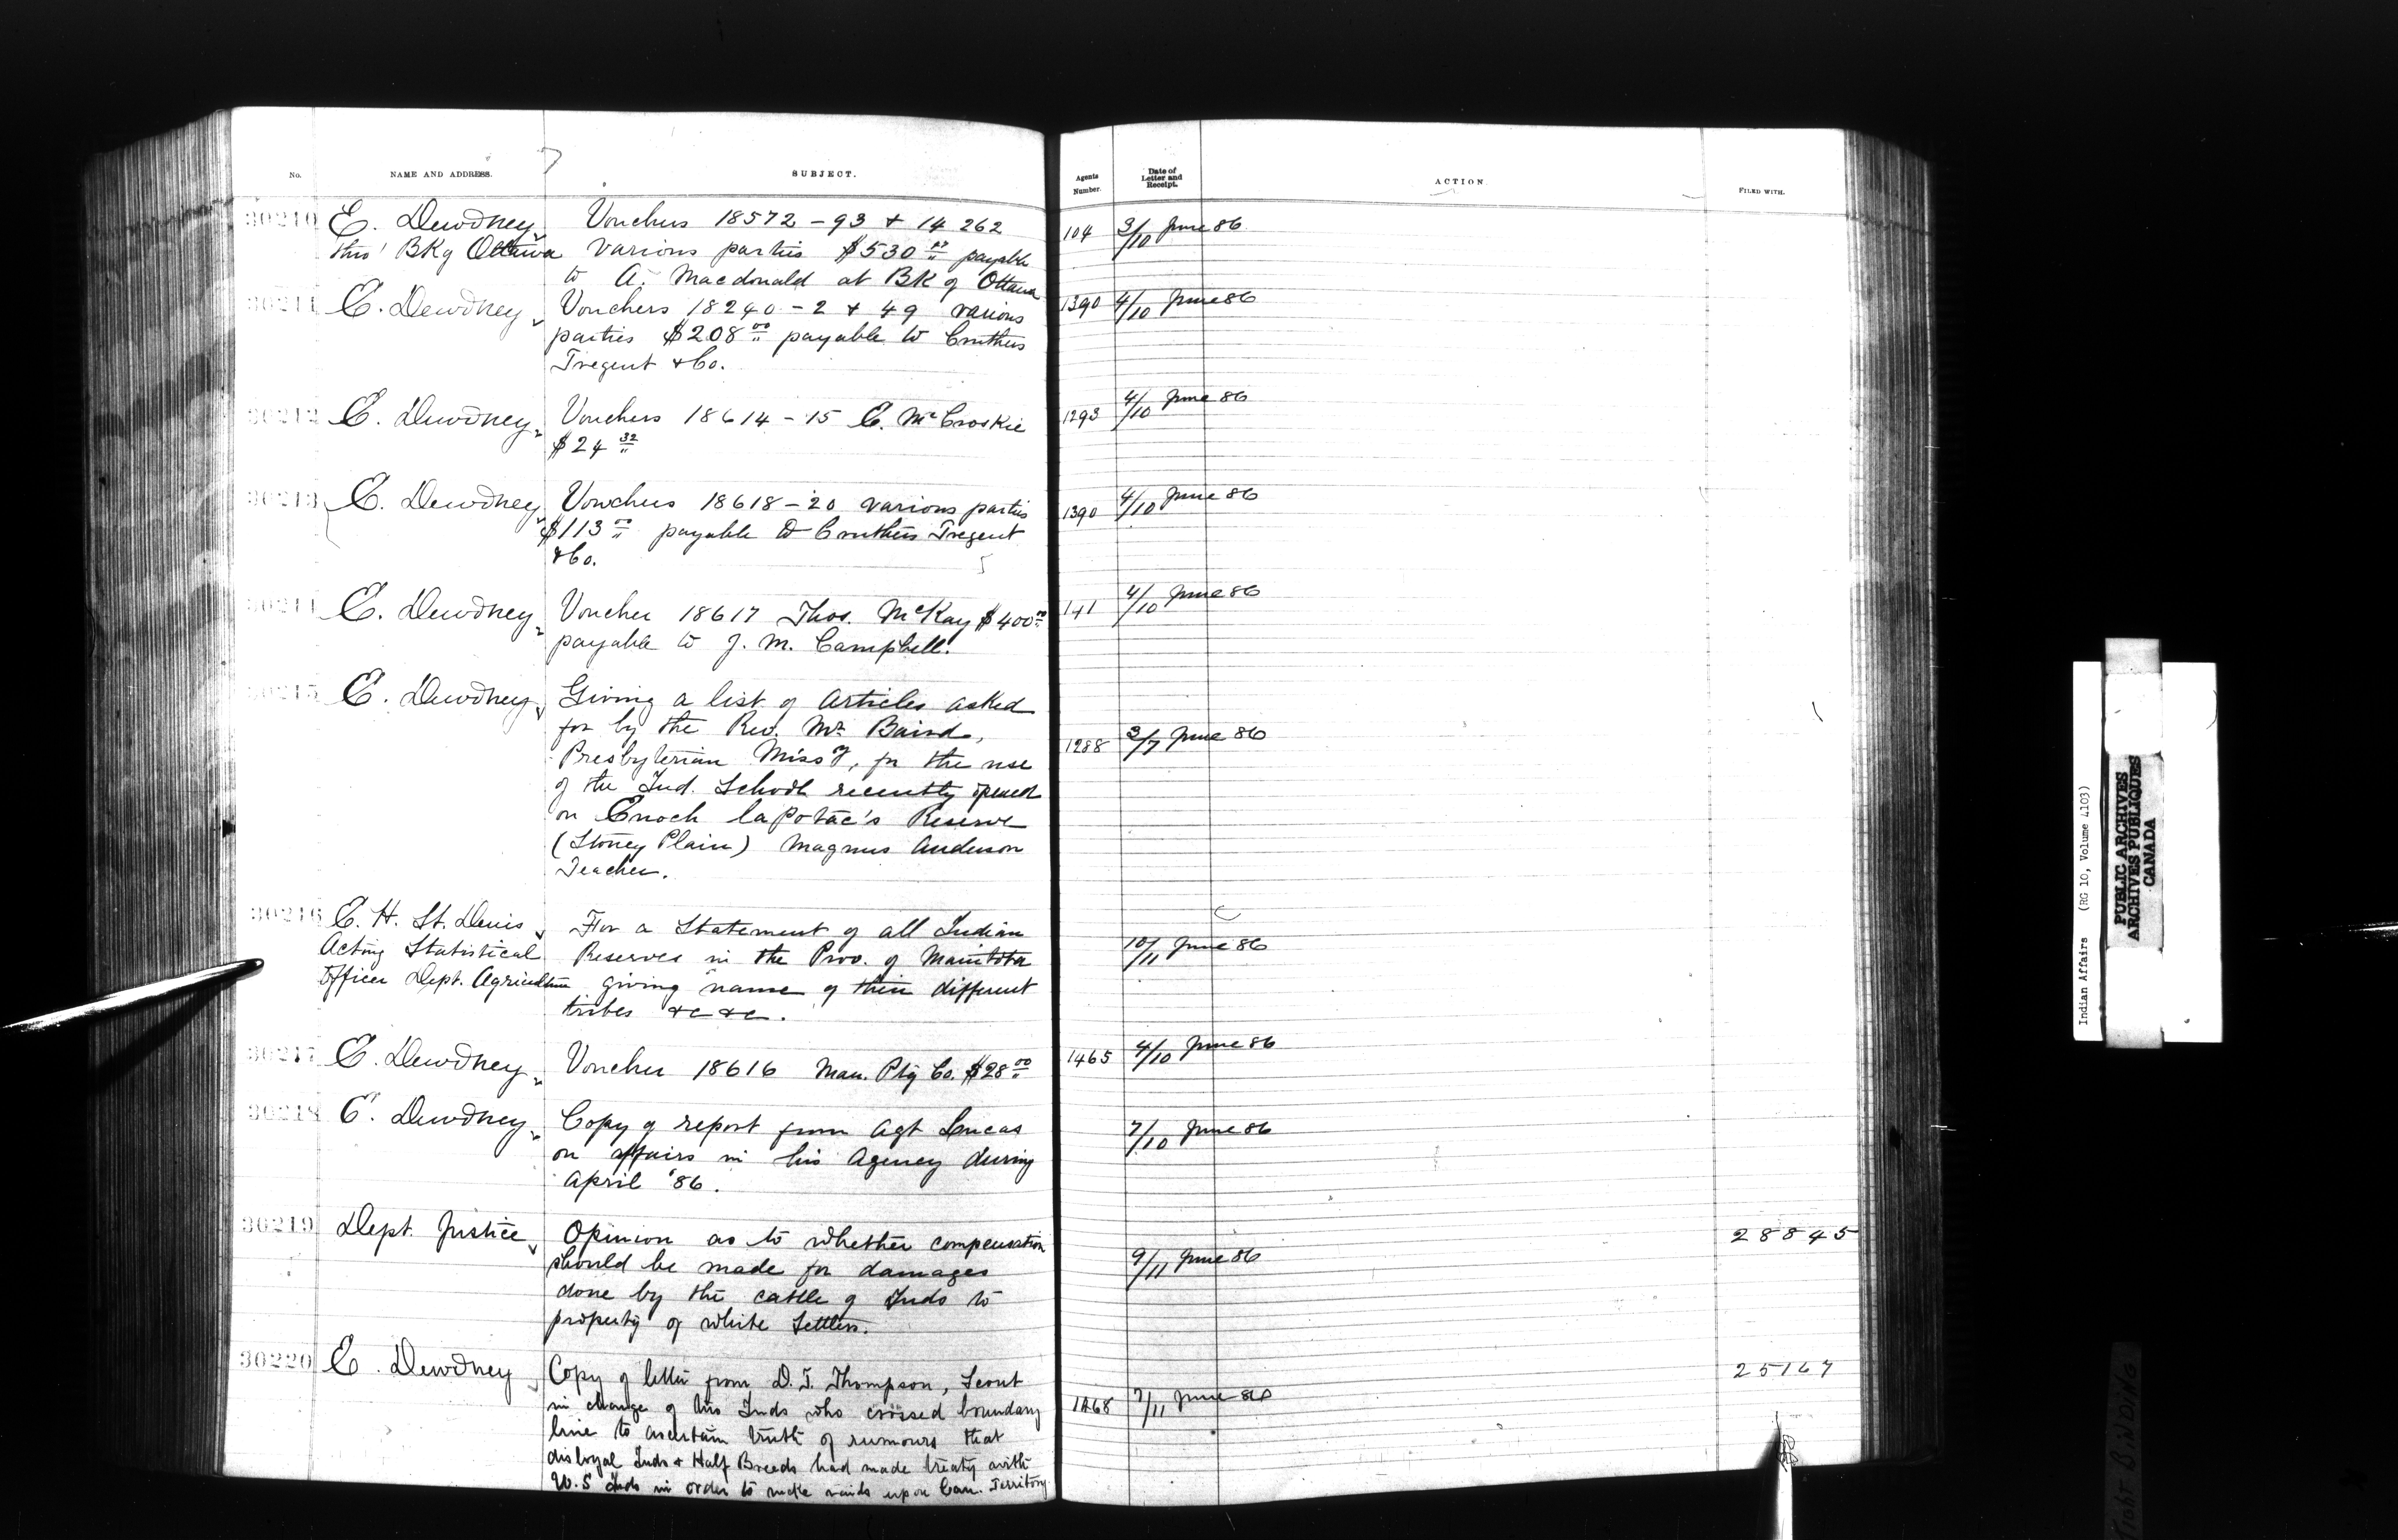 No. NAME AND ADDRESS. SUBJECT. Agents Number. Date of Letter and Receipt. ACTION FILED WITH.
30210 E. Dewdney Vouchers 18572 - 93 + 14 262 104 3/10 June 86
thro' Bk of Ottawa various parties $530.00 payable
to A. Macdonald at Bk of Ottawa
30211 E. Dewdney Vouchers 18240 - 2 + 49 various 1390 4/10 June 86
parties $208.00 payable to Cruthers
Tregent & Co.
30212 E. Dewdney Vouchers 18614 - 15 C. McCroskie 1293 4/10 June 86
$24.32
30213 E. Dewdney Vouchers 18618 - 20 various parties 1390 4/10 June 86
$113.00 payable to Cruthers Tregent
& Co.
30214 E. Dewdney Voucher 18617 Thos. McKay $400.00 141 4/10 June 86
payable to J. M. Campbell.
30215 E. Dewdney Giving a list of Articles asked
for by the Rev. Mr. Baird, 1288 3/7 June 86
Presbyterian Missy, for the use
of the Ind. School recently opened
on Enoch laPotac's Reserve
(Stoney Plain) Magnus Anderson
Teacher.
30216 C. H. St. Denis For a Statement of all Indian
Acting Statistical Reserves in the Prov. of Manitoba 10/11 June 86
Officer Dept. Agriculture giving name of their different
tribes &c &c.
30217 E. Dewdney Voucher 18616 Man. Ptg Co. $28.00 1465 4/10 June 86
30218 E. Dewdney Copy of report from Agt Lucas 7/10 June 86
on affairs in his Agency during
April '86.
30219 Dept. Justice Opinion as to whether compensation 28845
should be made for damages 9/11 June 86
done by the cattle of Inds to
property of white Settlers.
30220 E. Dewdney Copy of letter from D. J. Thompson, Scout 25167
in charge of two Inds who crossed boundary 1468 7/11 June 86
line to ascertain truth of rumours that
disloyal Inds & Half Breeds had made treaty with
U.S Inds in order to make raids upon Can. Territory
Indian Affairs (RG 10, Volume 4103)
PUBLIC ARCHIVES
ARCHIVES PUBLIQUES
CANADA
TIGHT BINDING